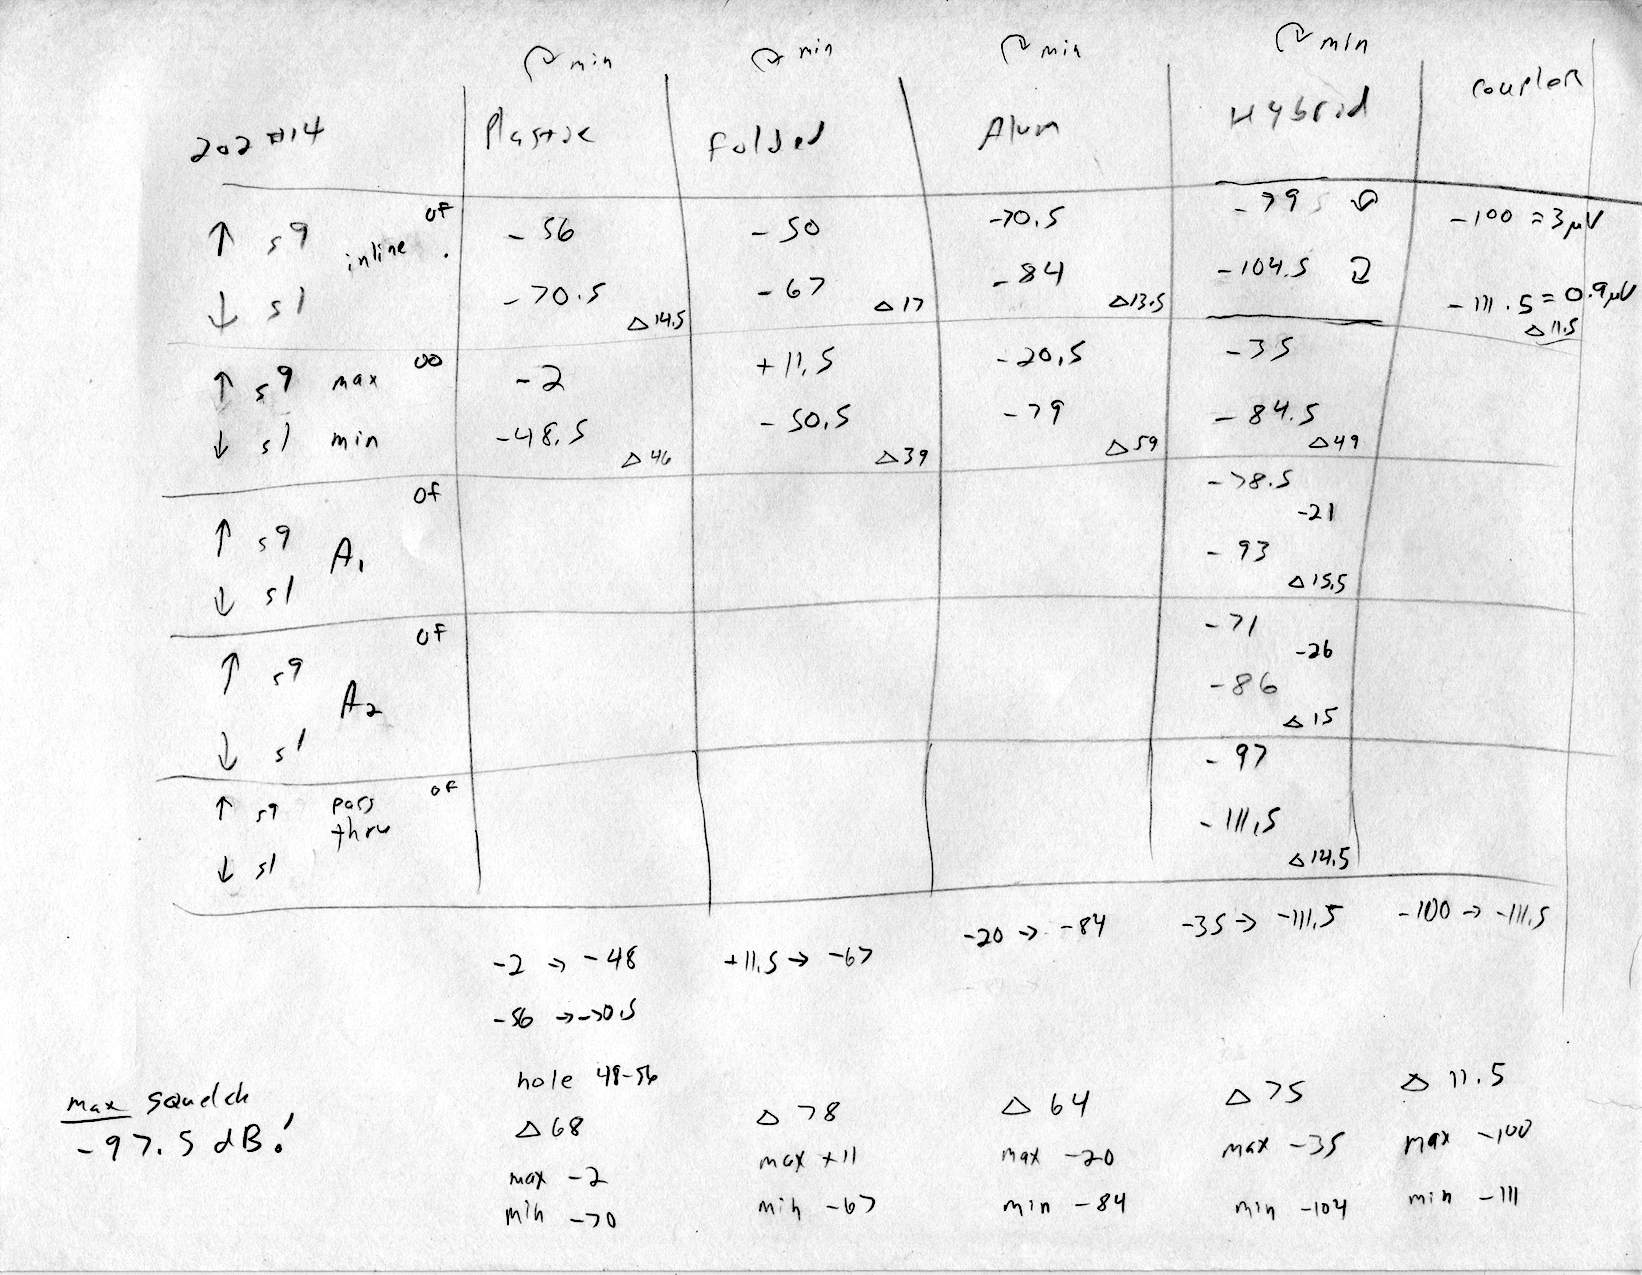 min min min min
202 #14 Plastic Folded Alum Hybrid coupler
↑ s9 inline of -56 -50 -70.5 -79 -100 = 3µV
↓ s1 -70.5 Δ14.5 -67 Δ17 -84 Δ13.5 -104.5 -111.5 = 0.9µV Δ11.5
↑ s9 max 00 -2 +11.5 -20.5 -35
↓ s1 min -48.5 Δ46 -50.5 Δ39 -79 Δ59 -84.5 Δ49
↑ s9 A1 of -78.5 -21
↓ s1 -93 Δ15.5
↑ s9 A2 of -71 -26
↓ s1 -86 Δ15
↑ s9 pass thru of -97
↓ s1 -111.5 Δ14.5
-2 → -48 +11.5 → -67 -20 → -84 -35 → -111.5 -100 → -111.5
-56 → -70.5
hole 48-56
Δ68 Δ78 Δ64 Δ75 Δ11.5
max -2 max +11 max -20 max -35 max -100
min -70 min -67 min -84 min -104 min -111
max squelch
-97.5 dB!